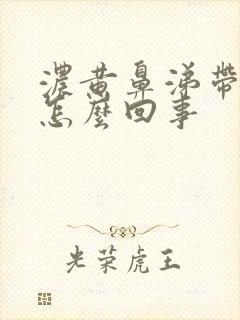 濃黄鼻涕帶
怎麼回事
光荣虎王